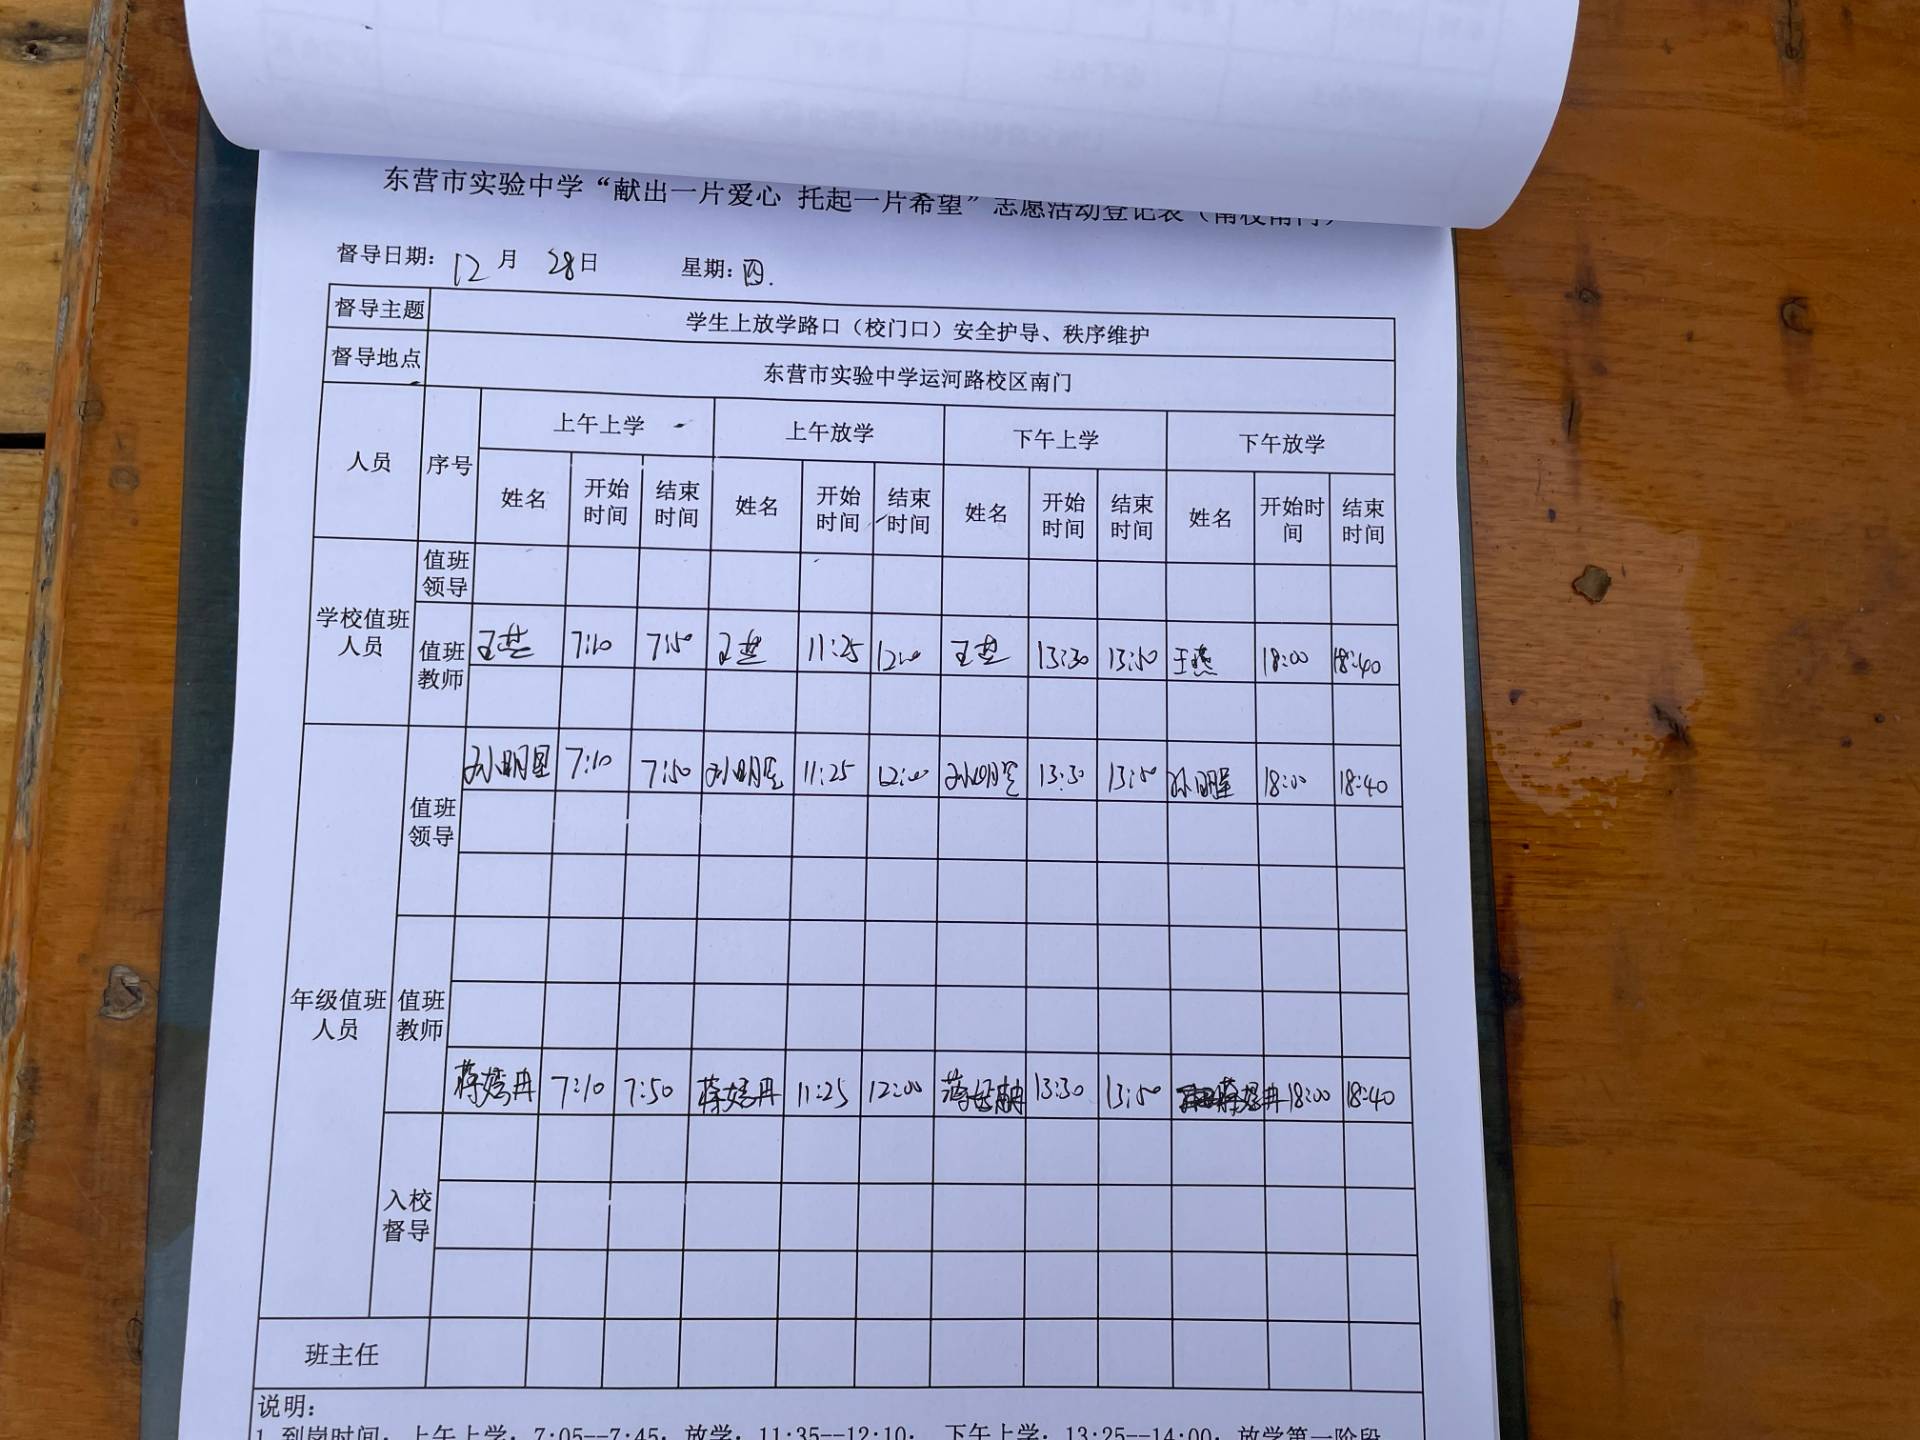 东营市实验中学“献出一片爱心 托起一片希望”志愿活动登记表（南校南门）
督导日期：12月 28日 星期：四.
督导主题 学生上放学路口（校门口）安全护导、秩序维护
督导地点 东营市实验中学运河路校区南门
人员 序号 上午上学 上午放学 下午上学 下午放学
姓名 开始时间 结束时间 姓名 开始时间 结束时间 姓名 开始时间 结束时间 姓名 开始时间 结束时间
学校值班人员 值班领导
值班教师 王燕 7:10 7:50 王燕 11:25 12:00 王燕 13:30 13:50 王燕 18:00 18:40
年级值班人员 值班领导 孙明星 7:10 7:50 孙明星 11:25 12:00 孙明星 13:30 13:50 孙明星 18:00 18:40
值班教师 蒋 7:10 7:50 蒋 11:25 12:00 蒋 13:30 13:50 蒋 18:00 18:40
入校督导
班主任
说明：
1.到岗时间：上午上学：7:05--7:45；放学：11:35--12:10； 下午上学：13:25--14:00；放学第一阶段